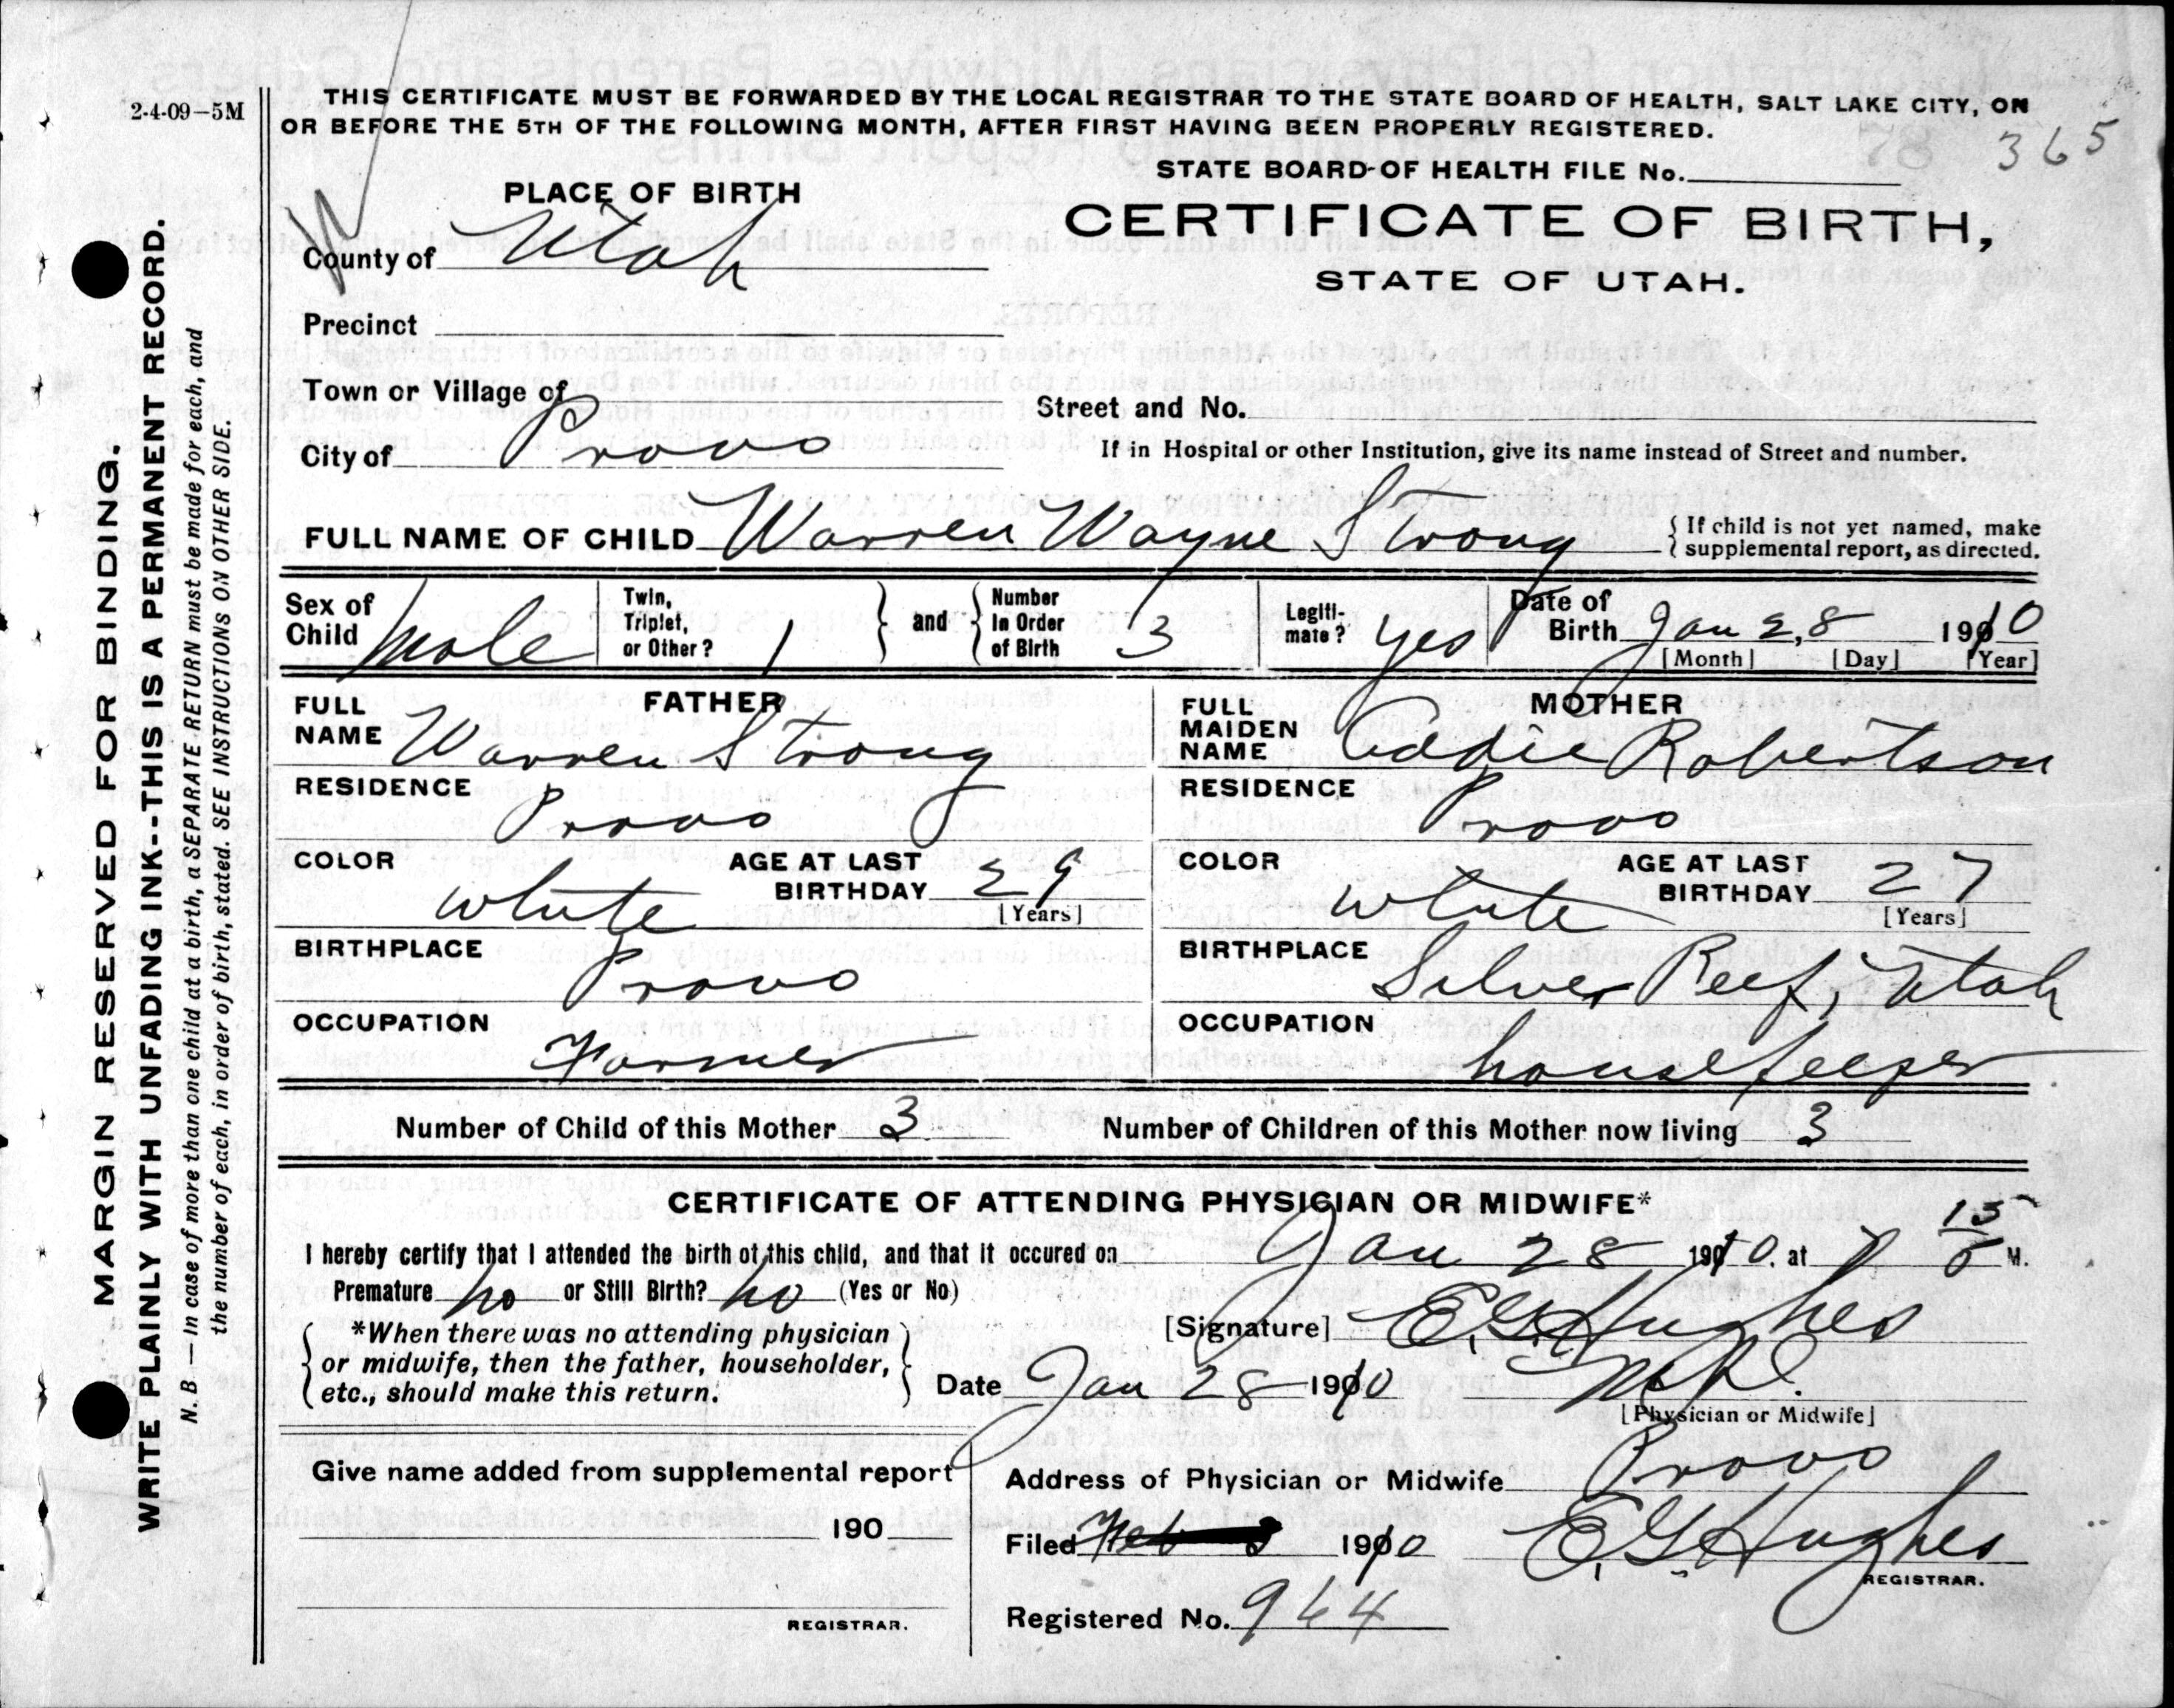 2-4-09–5M
THIS CERTIFICATE MUST BE FORWARDED BY THE LOCAL REGISTRAR TO THE STATE BOARD OF HEALTH, SALT LAKE CITY, ON
OR BEFORE THE 5TH OF THE FOLLOWING MONTH, AFTER FIRST HAVING BEEN PROPERLY REGISTERED.
78 365
STATE BOARD OF HEALTH FILE No.
PLACE OF BIRTH
CERTIFICATE OF BIRTH,
STATE OF UTAH.
County of Utah
Precinct
Town or Village of
Street and No.
City of Provo
If in Hospital or other Institution, give its name instead of Street and number.
FULL NAME OF CHILD Warren Wayne Strong
{ If child is not yet named, make
{ supplemental report, as directed.
Sex of Child Male
Twin, Triplet, or Other? 1
and
Number In Order of Birth 3
Legiti-mate? yes
Date of Birth Jan 28, 1910
[Month] [Day] [Year]
FATHER
FULL NAME Warren Strong
RESIDENCE Provo
COLOR white
AGE AT LAST BIRTHDAY 29
[Years]
BIRTHPLACE Provo
OCCUPATION Farmer
MOTHER
FULL MAIDEN NAME Addie Robertson
RESIDENCE Provo
COLOR white
AGE AT LAST BIRTHDAY 27
[Years]
BIRTHPLACE Silver Reef, Utah
OCCUPATION housekeeper
Number of Child of this Mother 3
Number of Children of this Mother now living 3
CERTIFICATE OF ATTENDING PHYSICIAN OR MIDWIFE*
I hereby certify that I attended the birth of this child, and that it occured on Jan 28 1910. at 15 M.
Premature no or Still Birth? no (Yes or No)
[Signature] E. G. Hughes
*When there was no attending physician
or midwife, then the father, householder,
etc., should make this return.
Date Jan 28 1910
M.D.
[Physician or Midwife]
Give name added from supplemental report
190
REGISTRAR.
Address of Physician or Midwife Provo
Filed Feb 1910
E. G. Hughes
REGISTRAR.
Registered No. 964
MARGIN RESERVED FOR BINDING.
WRITE PLAINLY WITH UNFADING INK--THIS IS A PERMANENT RECORD.
N. B.—In case of more than one child at a birth, a SEPARATE RETURN must be made for each, and
the number of each, in order of birth, stated. SEE INSTRUCTIONS ON OTHER SIDE.